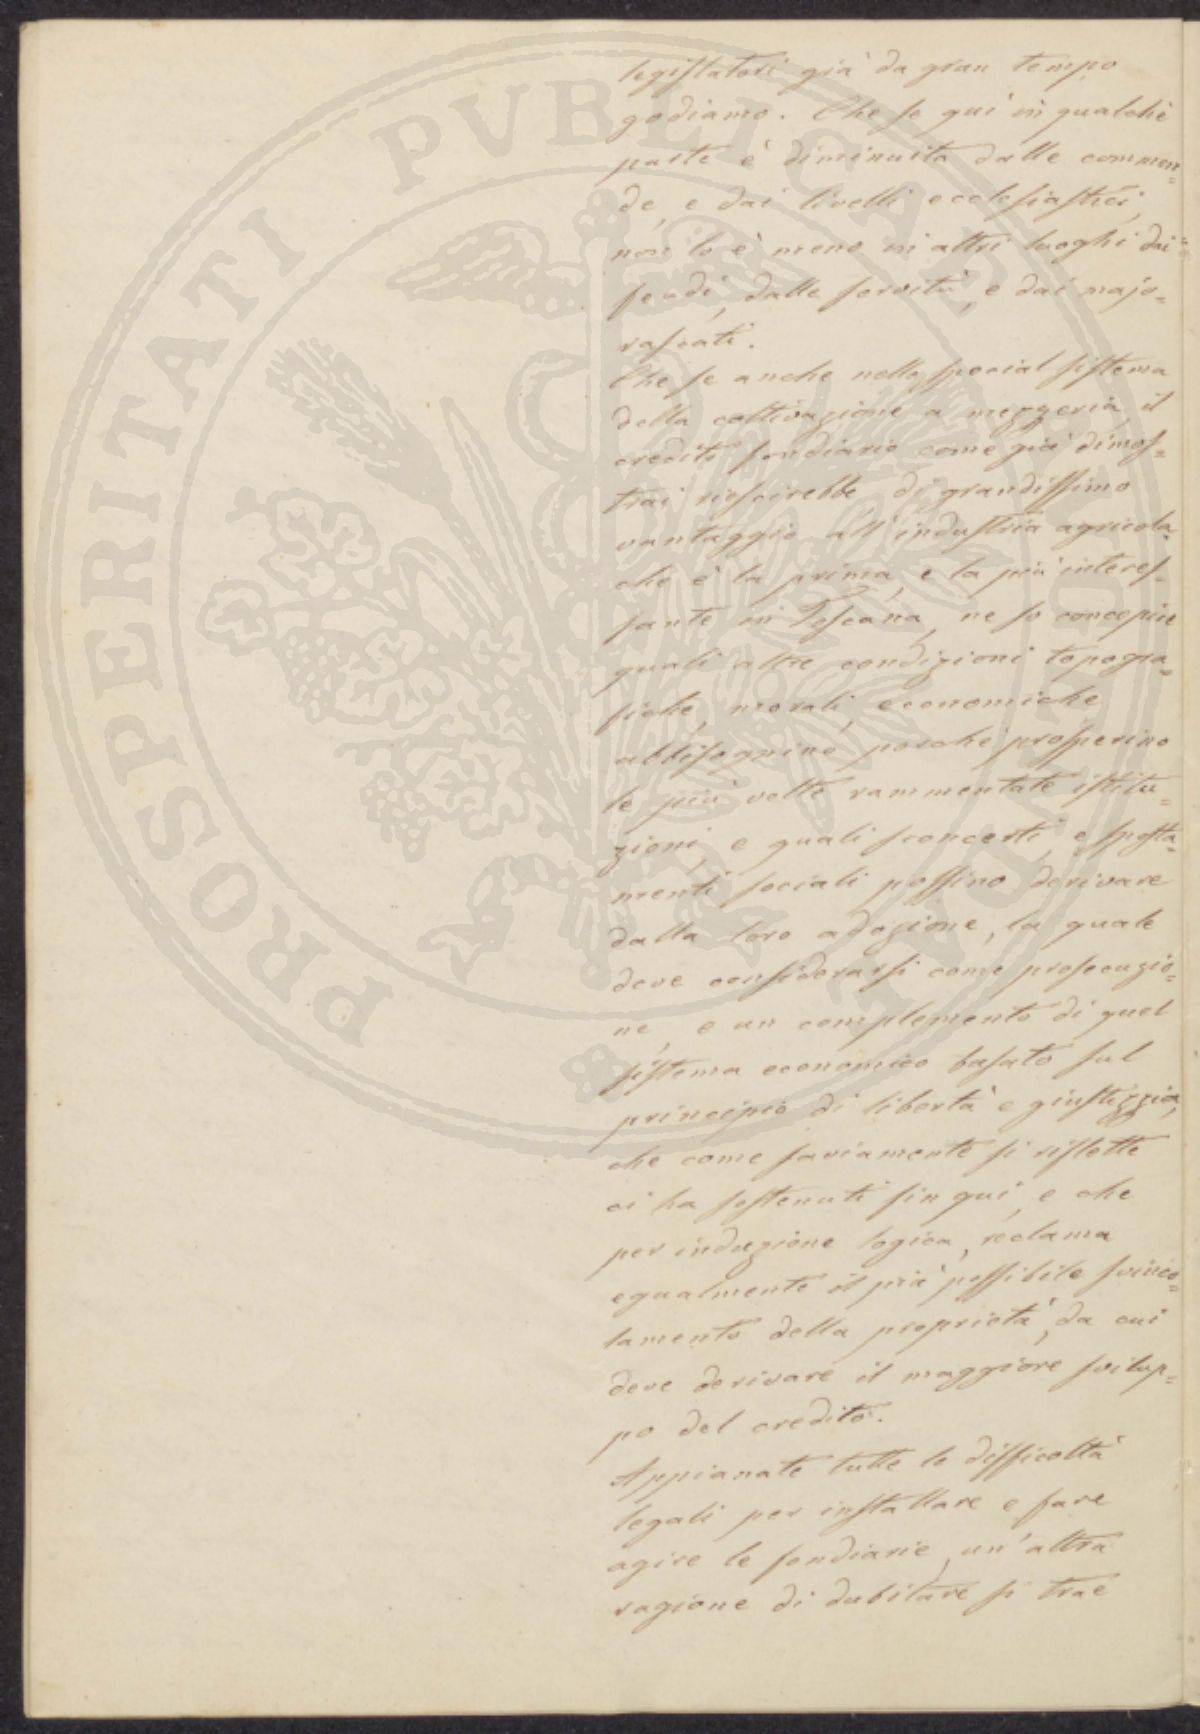 legislatori già da gran tempo
godiamo. Che se qui in qualche
parte è diminuita dalle commen=
de, e dai livelli ecclesiastici,
non lo è meno in altri luoghi dai
feudi, dalle servitù, e dai majo=
rascati.
Che se anche nello special sistema
della coltivazione a mezzeria, il
credito fondiario come già dimos=
trai riescirebbe di grandissimo
vantaggio all'industria agricola,
che è la prima, e la più interes=
sante in Toscana, ne so concepire
quali altre condizioni topogra=
fiche, morali, economiche
abbisognino, perché prosperino
le più volte rammentate istitu=
zioni, e quali sconcerti, e sposta=
menti sociali possino derivare
dalla loro adozione, la quale
deve considerarsi come prosecuzio=
ne, e un complemento di quel
sistema economico basato sul
principio di libertà e giustizzia,
che come saviamente si riflette
ci ha sostenuti fin qui, e che
per induzione logica, reclama
egualmente il più possibile svinco=
lamento della proprietà, da cui
deve derivare il maggiore svilup=
po del credito.
Appianate tutte le difficoltà
legali per installare e fare
agire le fondiarie, un'altra
ragione di dubitare si trae
PROSPERITATI PVBLICAE